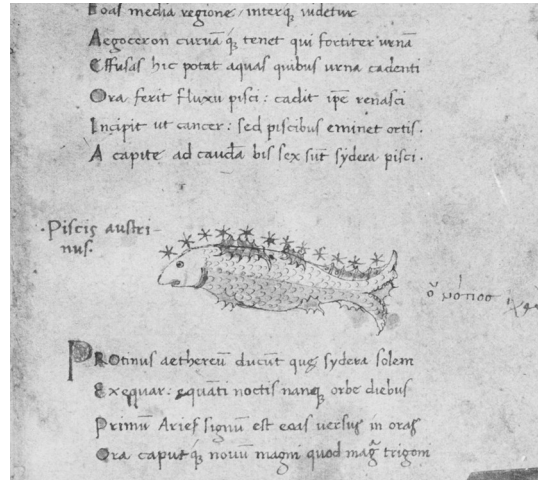 Eoas media regione: interq; uidetur
Aegoceron curuā q́; tenet qui fortiter urnā
Effusas hic potat aquas quibus urna cadenti
Ora ferit fluxu pisci: cadit ip̄e renasci
Incipit ut cancer: sed piscibus eminet ortis.
A capite ad caudā bis sex sūt sydera pisci.
·Piscis austri-
nus.
ὁ νότιος
PRotinus aethereū ducūt quę sydera solem
Exequar: ęquāti noctis nanq; orbe diebus
Primū Aries signū est eoas uersus in oras
Ora caput q́; nouū magni quod mag̃ trigoni